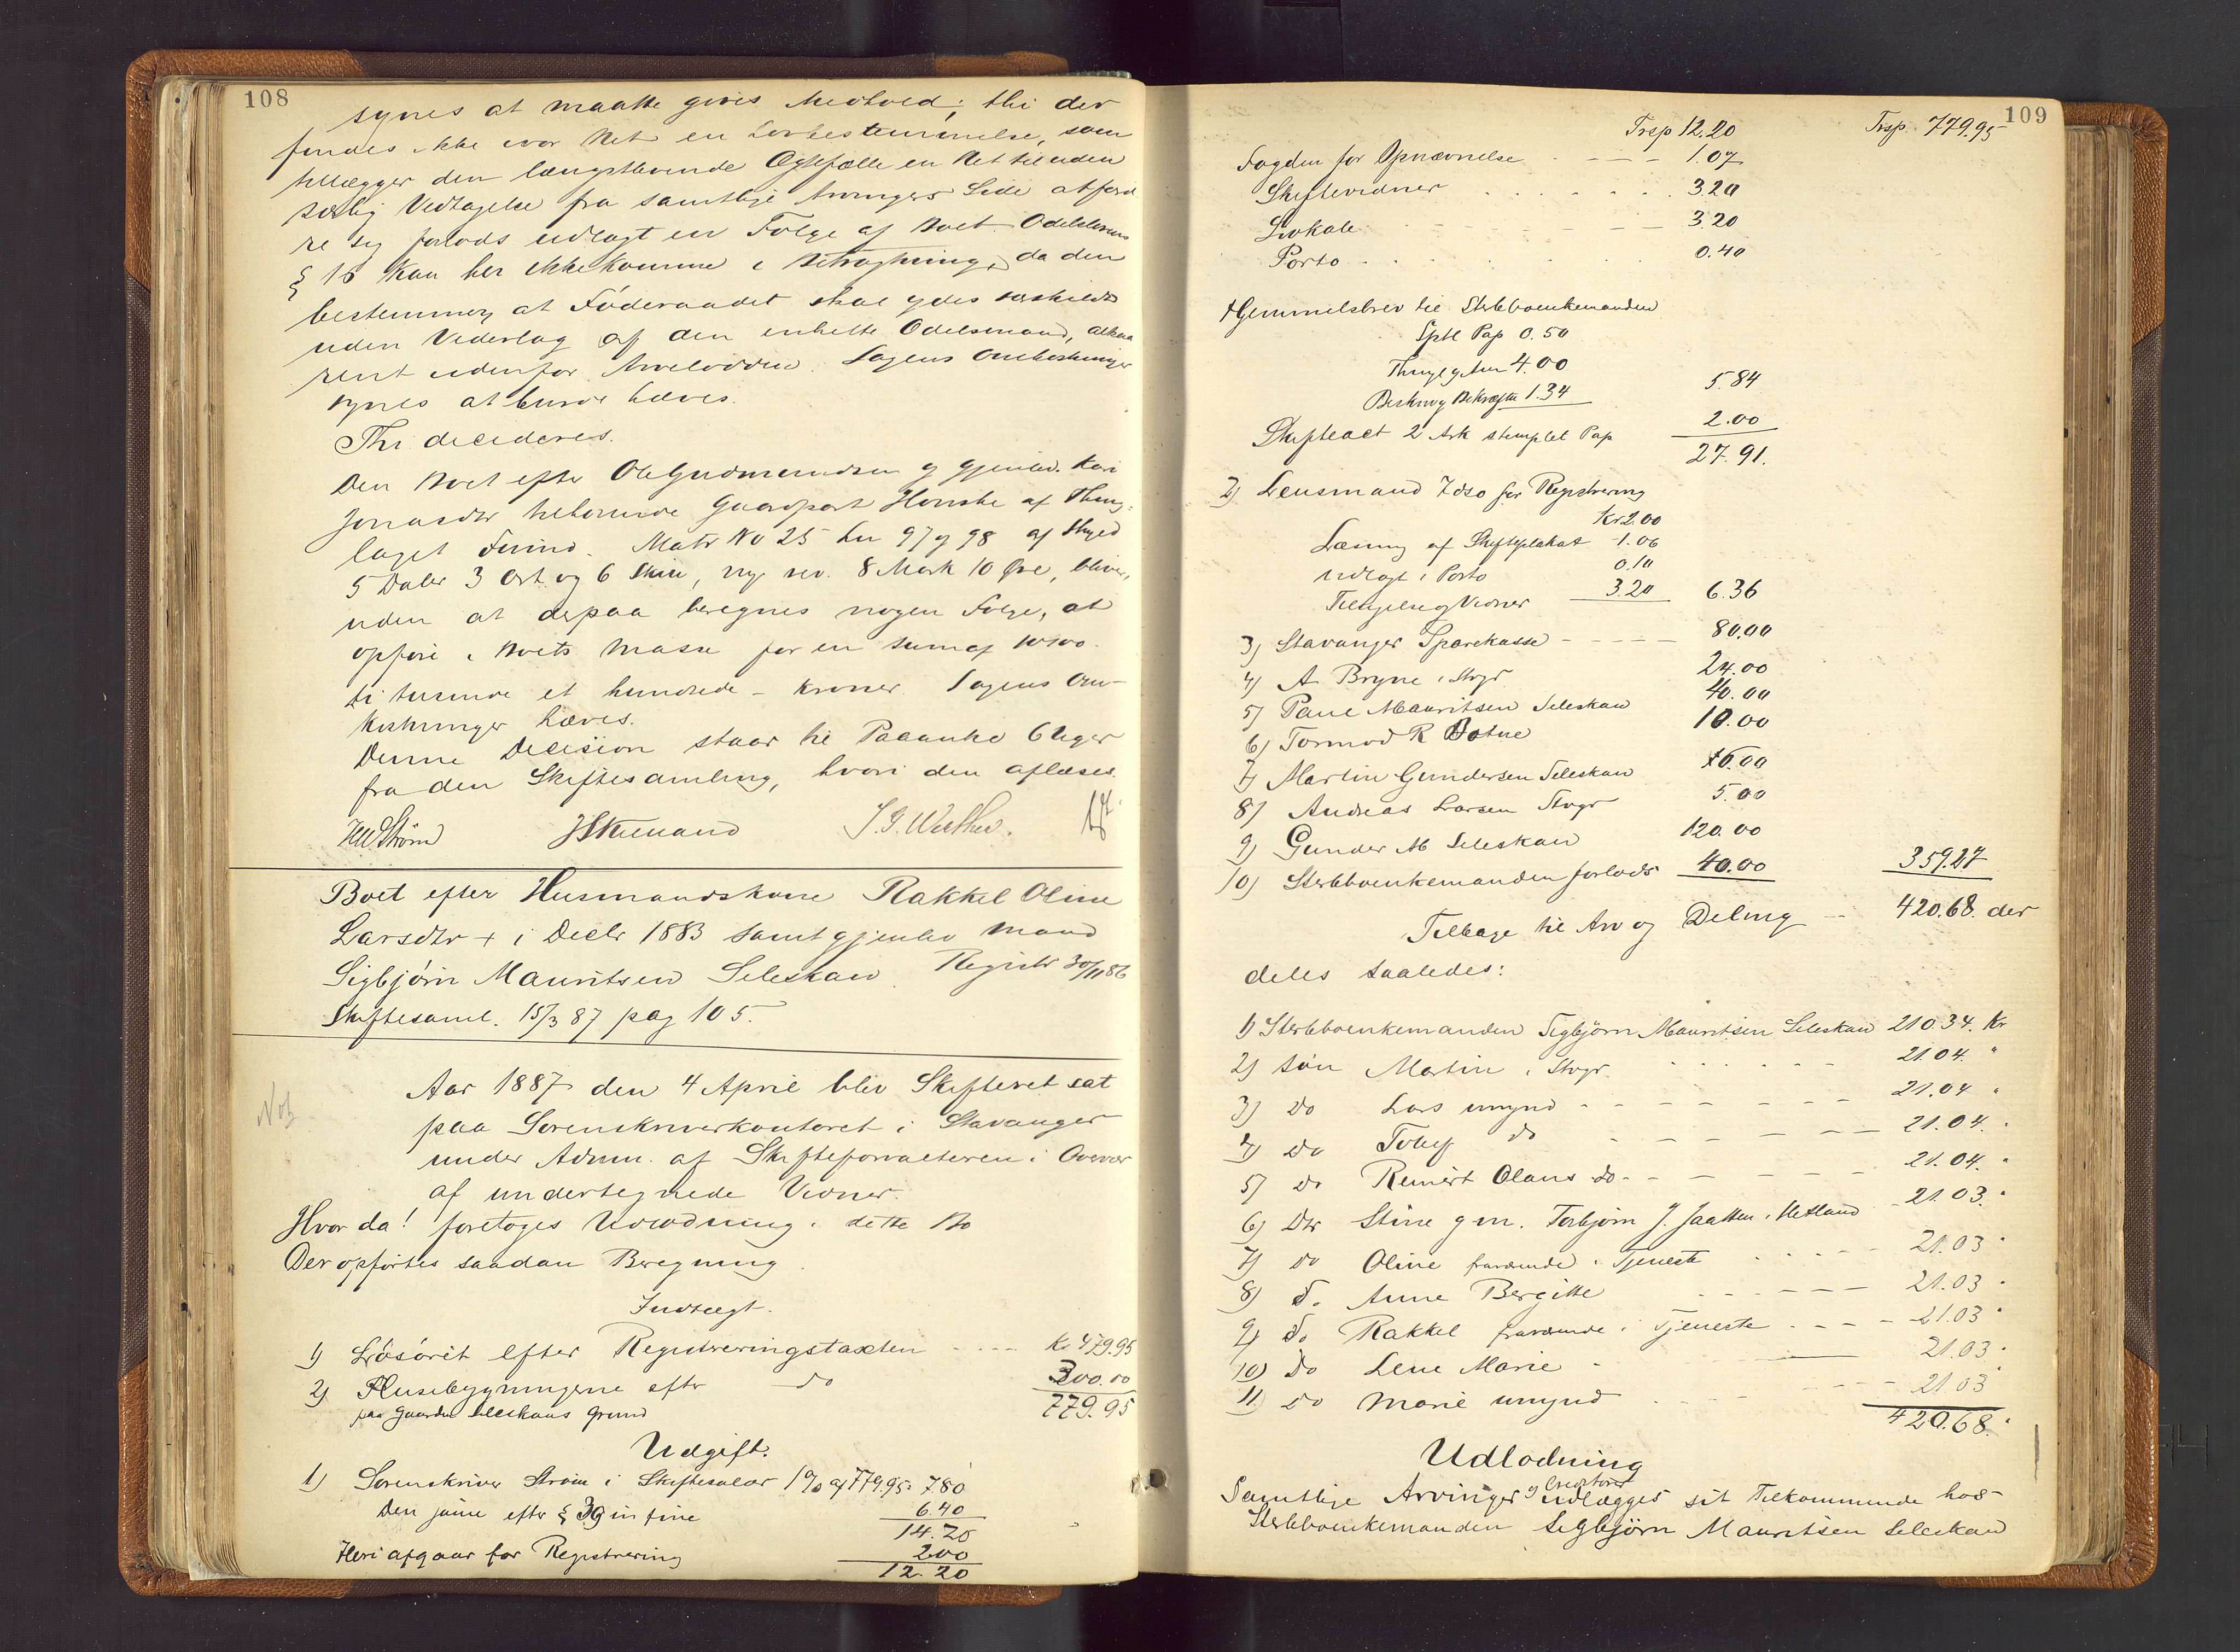 108
synes at maatte gives Medhold; thi der
findes ikke i vor Ret en Lovbestemmelse, som
tillægger den længstlevende Ægtefælle en Ret til uden
særlig Vedtagelse fra samtlige Arvingers Side at
re sig forlods udlagt en Følge af Boet. Odelslovens
§ 15 kan her ikke komme i Betragtning, da den
bestemmer, at Føderaadet skal ydes særskildt
uden Vederlag af den enkelte Odelsmand, altsaa
rent udenfor Arvelodden. Sagens Omkostninger
synes at burde hæves.
Thi decideres.
Den Boet efter Ole Gudmundsen og gjenlev. Kari
Jonasdtr tilhørende Gaardpart Honske af Thing-
laget Matr No 25 Lnr 97 og 98 af Skyld
5 Daler 3 Ort og 6 Skill, ny rev. 8 Mark 10 Øre, bliver,
uden at derpaa beregnes nogen Følge, at
opføre i Boets Masse for en Sum af 10100
ti tusinde et hundrede - Kroner. Sagens Om-
kostninger hæves.
Denne Decision staar til Paaanke 6 Uger
fra den Skiftesamling, hvori den aflæses.
HWStrøm
Boet efter Husmandskone Rakkel Oline
Larsdtr + i Decbr 1883 samt gjenlev Mand
Sigbjørn Mauritsen Seleskau. Registr 30/11 86
Skiftesaml. 15/3 87 pag 105.
Aar 1887 den 4 April blev Skifteret sat
paa Sorenskriverkontoret i Stavanger
under Admin. af Skifteforvalteren i Overvær
af undertegnede Vidner.
Hvor da! foretoges Udlodning i dette Bo
Der opførtes saadan Beregning
Indtægt.
1) Løsøret efter Registreringstaxten - - - Kr 479.95
2) Husebygningerne eftr do 300.00
paa Gaarden Seleskaus Grund
779.95
Udgift.
1) Sorenskriver Strøm i Skiftesalær 1% af 779.95 = 7.80
Den samme efter § 39 in fine 6.40
14.20
Heri afgaar for Registrering 2.00
12.20
109
Trsp 12.20 Trsp. 779.95
Fogden for Opnævnelse - - - 1.07
Skiftevidner . . . . 3.20
Lokale - - - - 3.20
Porto . . . . 0.40
Hjemmelsbrev til Sterbboenkemanden
Sptl Pap 0.50
Thinglysn 4.00
Beskriv og Bekræft 1.34 5.84
Skifteact 2 Ark stemplet Pap 2.00
27.91.
2) Lensmand Idsø for Registrering
Kr 2.00
Læsning af Skifteplakat 1.06
Udlagt i Porto 0.10
Tilsigelse og Vidner 3.20 6.36
3) Stavanger Sparekasse - - - - 80.00
4) A. Bryne i Stvgr 24.00
5) Paul Mauritsen Seleskau 40.00
6) Tormod R Botne 10.00
7) Martin Gundersen Seleskau 16.00
8) Andreas Larsen Stvgr 5.00
9) Gunder M Seleskau 120.00
10) Sterbboenkemanden forlods 40.00 359.27
Tilbage til Arv og Deling - 420.68. der
deles saaledes:
1) Sterbboenkemanden Sigbjørn Mauritsen Seleskau 210.34. Kr
2) Søn Martin i Stvgr 21.04. "
3) Do Lars umynd - - - 21.04 "
4) Do do - - - 21.04. "
5) Do Reinert Olaus do - - - 21.04. "
6) Dtr Stine g m. Torbjørn J. Jaatten i Hetland - 21.03. "
7) Do Oline fraværende i Tjeneste . . . 21.03 "
8) Do Anne Bergitte - - - 21.03 "
9) Do Rakkel fraværende i Tjeneste - - - 21.03 "
10) Do Lene Marie - 21.03 "
11) Do Marie umynd - - - 21.03 "
420.68. "
Udlodning
Samtlige Arvinger og Creditorer udlægges sit Tilkommende hos
Sterbboenkemanden Sigbjørn Mauritsen Seleskau